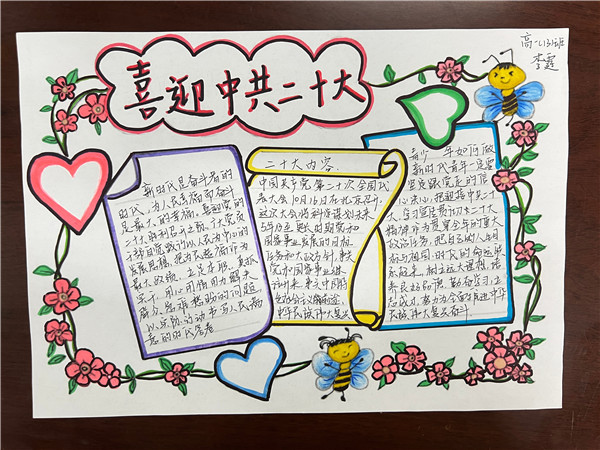 喜迎中共二十大
高一(3)班
李霆
新时代是奋斗者的
时代,为人民幸福而奋斗
是最大的幸福,喜迎党的
二十大胜利召开之际,广大党员
干部自觉践行以人民为中心的
发展思想,把为民造福作为
最大政绩,立足本职,真抓
实干,用心用情用力解决
群众急难愁盼的问题
以实际行动书写人民满
意的时代答卷
二十大内容
中国共产党第二十次全国代
表大会10月16日在北京召开,
这次大会将科学谋划未来
5年乃至更长时期党和
国家事业发展的目标
任务和大政方针,事关
党和国家事业继
往开来,事关中国特
中华民族伟大复兴
青少年如何做
新时代青年一定要
坚定跟党走的信
心决心,把迎接中共二十
大学习宣传贯彻中共二十大
精神作为贯穿全年的重大
政治任务,把自己的人生目
标与祖国、时代的命运联
系起来,树立远大理想,培
养良好品质,勤奋学习,立
志成才,努力为全面推进中华
民族伟大复兴奋斗